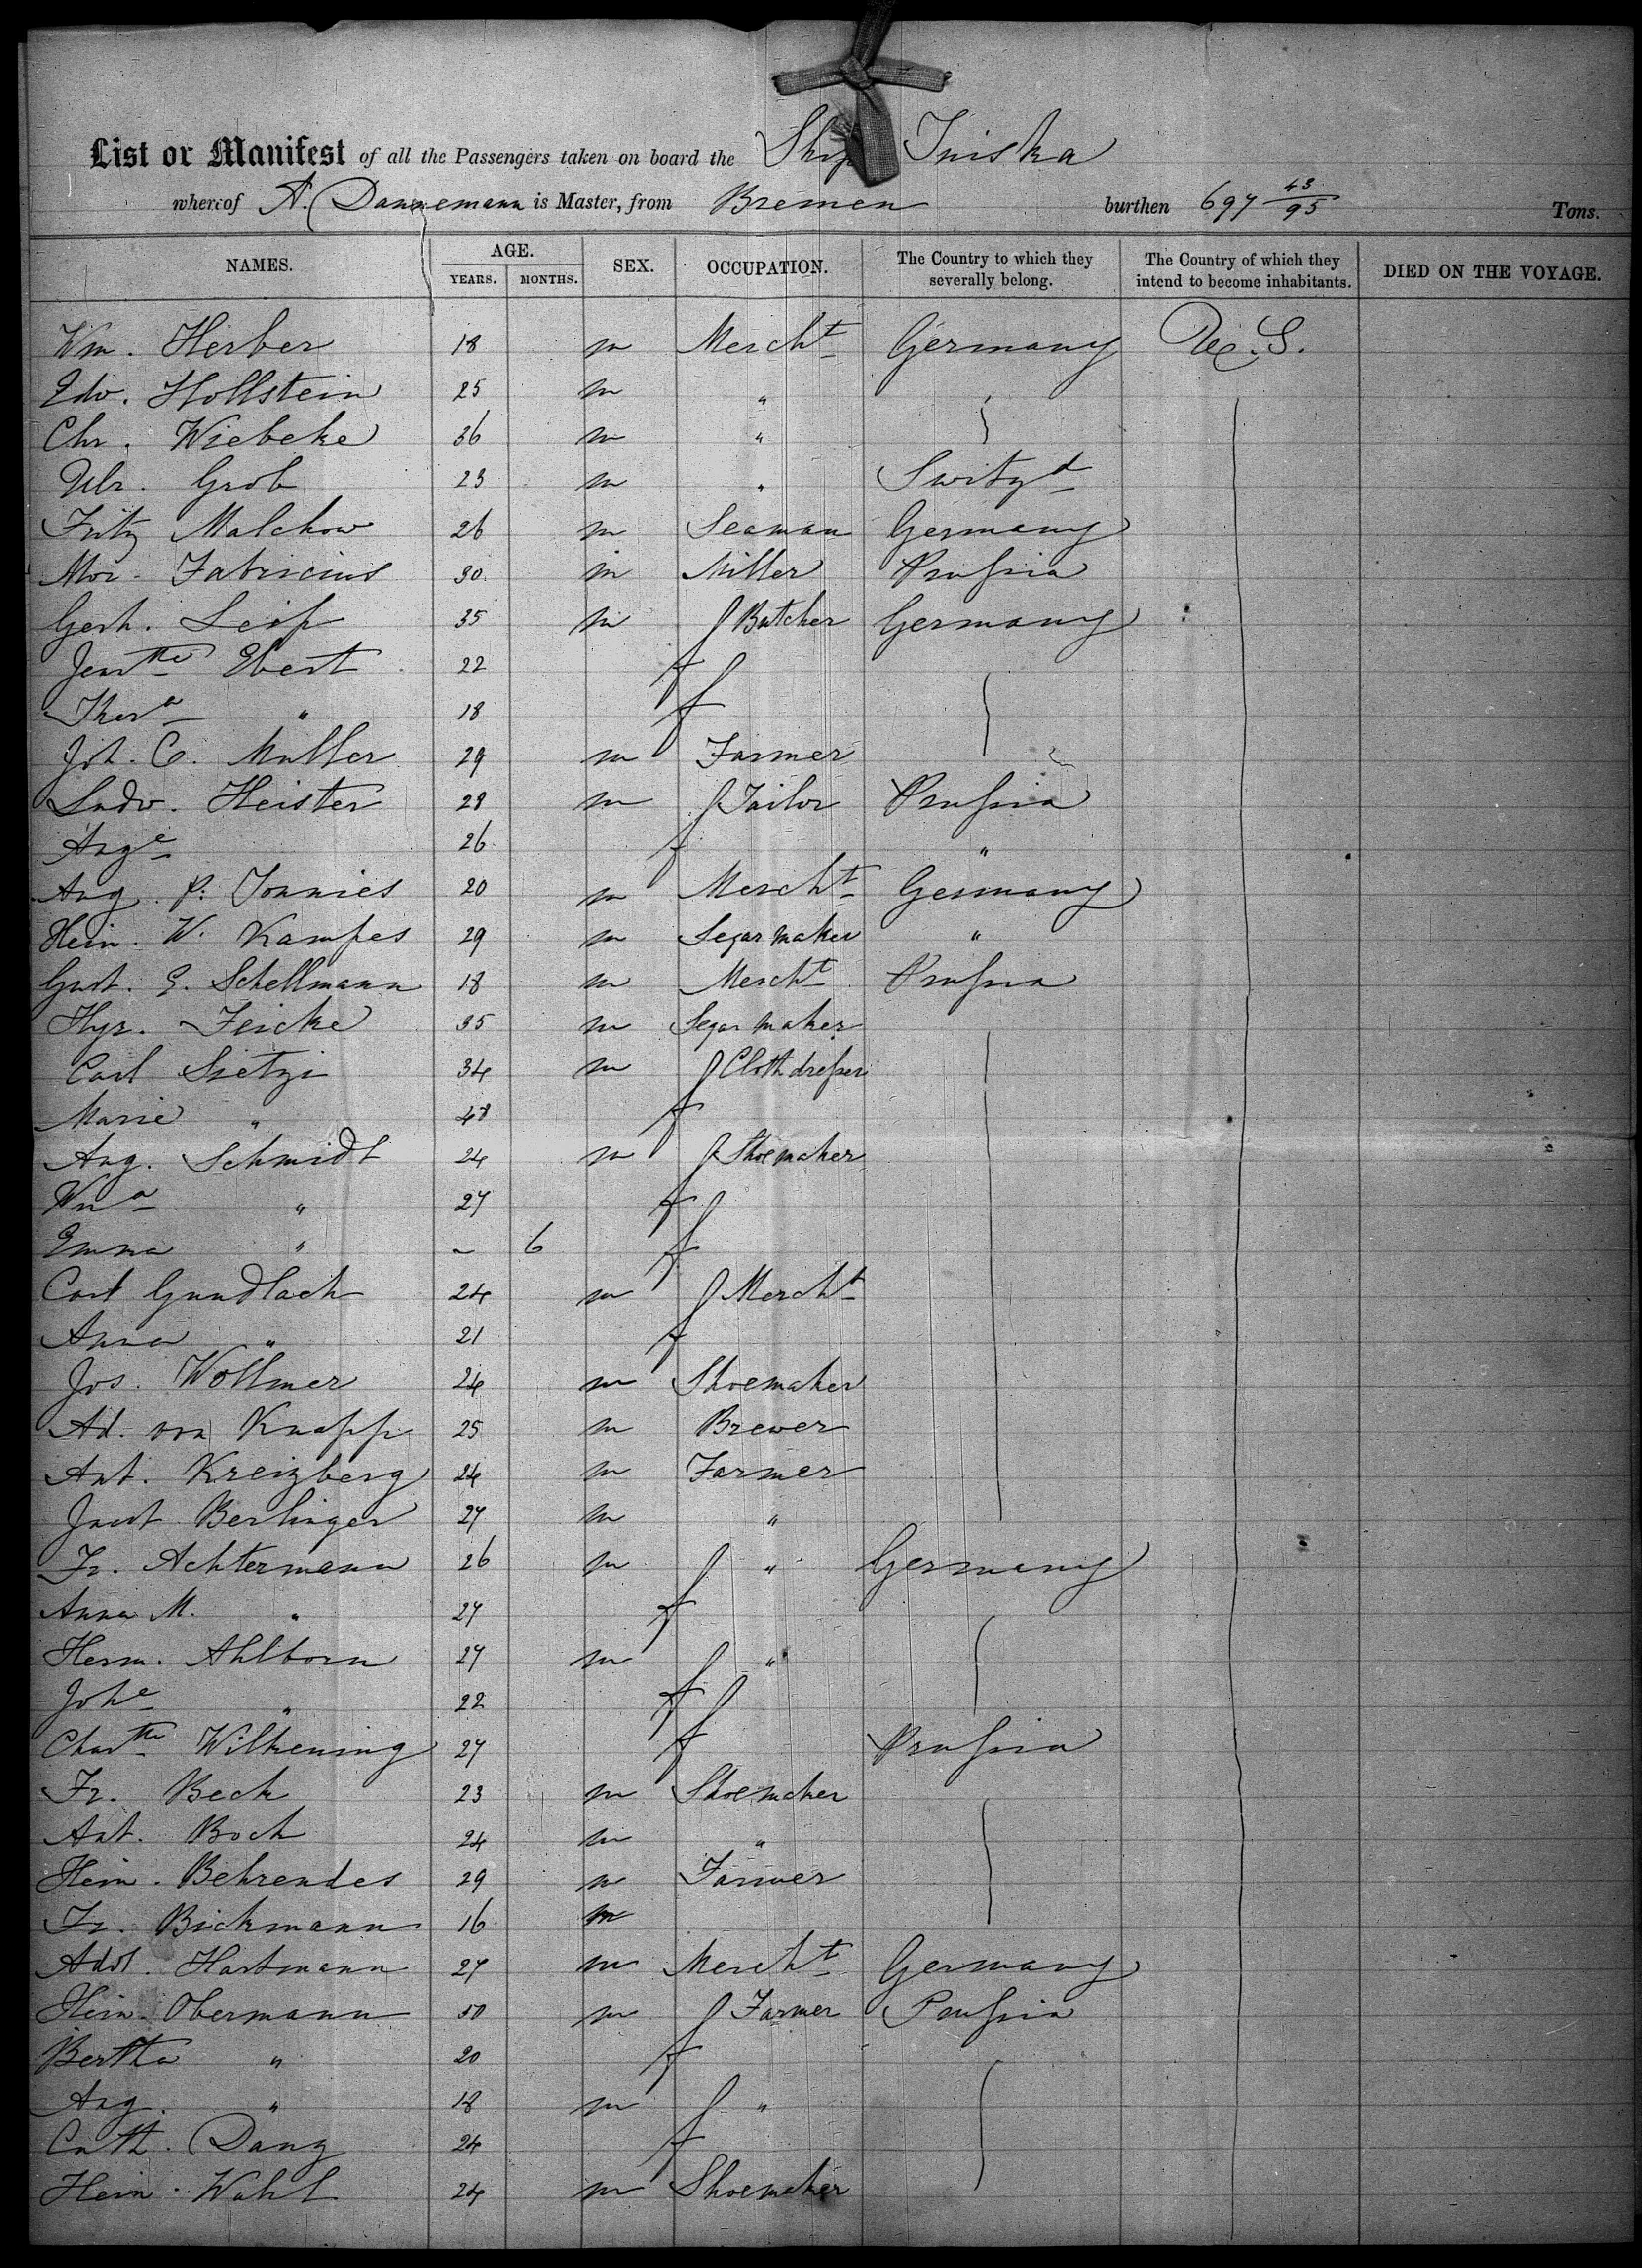 List or Manifest of all the Passengers taken on board the Ship Iniska
whereof A. Dannemann is Master, from Bremen burthen 697 43/95 Tons.
NAMES. AGE. SEX. OCCUPATION. The Country to which they severally belong. The Country of which they intend to become inhabitants. DIED ON THE VOYAGE.
YEARS. MONTHS.
Wm. Herber 18 m Mercht Germany U.S.
Edw. Hollstein 25 m "
Chr. Wiebeke 36 m "
Ulr. Grob 23 m " Switzd
Fritz Malchow 26 m Seaman Germany
Mor. Fabricius 30 m Miller Prussia
Gerh. 35 m Butcher Germany
Jentte Ebert 22 f
Thera " 18 f
Joh. C. Muller 29 m Farmer
Ludw. Heister 28 m Tailor Prussia
Auge 26 f "
Aug. P. Tonnies 20 m Mercht Germany
Hein. W. Kampes 29 m Segar maker "
Gust. E. Schellmann 18 m Mercht Prussia
Hyr. Feicke 35 m Segar maker
Carl Sietzi 34 m Cloth dresser
Marie " 48 f
Aug. Schmidt 24 m Shoemaker
Wna " 27 f
Emma " - 6 f
Carl Gundlach 24 m Mercht
Anna " 21 f
Jos. Wollmer 24 m Shoemaker
Ad. von Knapp 25 m Brewer
Ant. Kreizberg 24 m Farmer
Berlinger 27 m "
Fr. Achtermann 26 m " Germany
Anna M. " 27 f
Herm. Ahlborn 27 m "
Johe " 22 f
Chartte Wilkening 27 f Prussia
Fr. Beck 23 m Shoemaker
Ant. Boch 24 m "
Hein. Behrendes 29 m Farmer
Fr. Bickmann 16 m
Adol. Hartmann 27 m Mercht Germany
Hein. Obermann 50 m Farmer Prussia
Bertha " 20 f
Aug. " 18 m "
Cath. Danz 24 f
Hein. Wahl 24 m Shoemaker